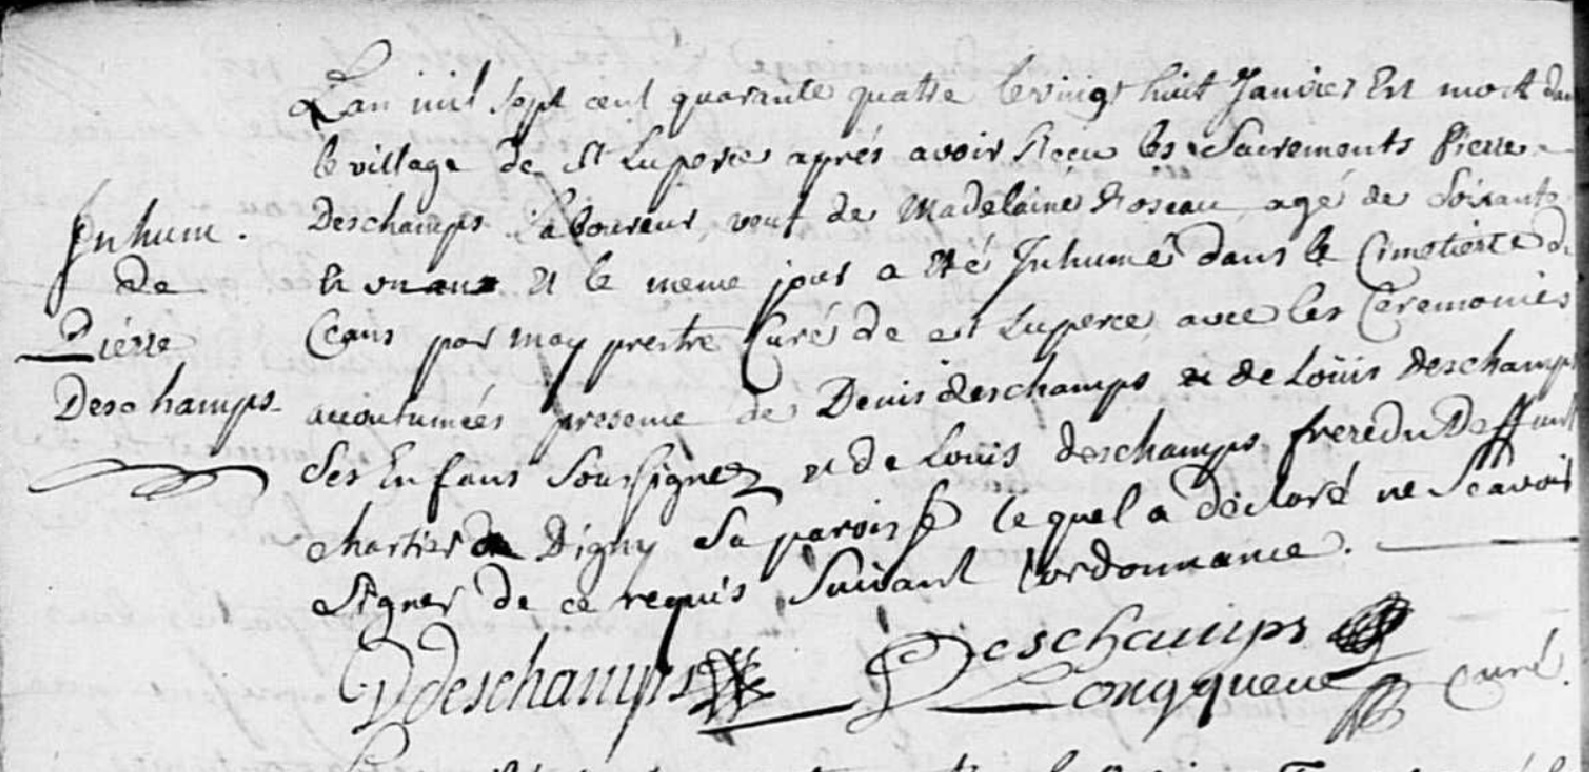 L'an mil sept cent quarante quatre le vingt huit Janvier Est mort dans
le village de St Luperce aprés avoir Receu les Sacrements Pierre
Inhum.
de
Pierre
Deschamps
Deschamps Laboureur, veuf de Madelaine Roseau, agé de Soixante
et un ans Et le meme jour a eté Inhumé dans le Cimetiere de
Ceans par moy prestre Curé de st Luperce, avec les Ceremonies
accoutumées presence de Denis deschamps et de Loüis deschamps
Ses Enfans Soussignez et de Loüis deschamps frere du Deffunt
chartier de Digny Sa paroisse lequel a déclaré ne Scavoir
Signer de ce requis Suivant l'ordonnance.
D deschamps Deschamps
Longqueue Curé.